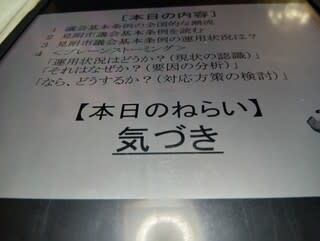 ［本日の内容］
1 議会基本条例の全国的な潮流
2 見附市議会基本条例を読む
3 見附市議会基本条例の運用状況は？
4 ＜ブレーンストーミング＞
「運用状況はどうか？（現状の認識）」
「それはなぜか？（要因の分析）」
「なら、どうするか？（対応方策の検討）」
【本日のねらい】
気づき